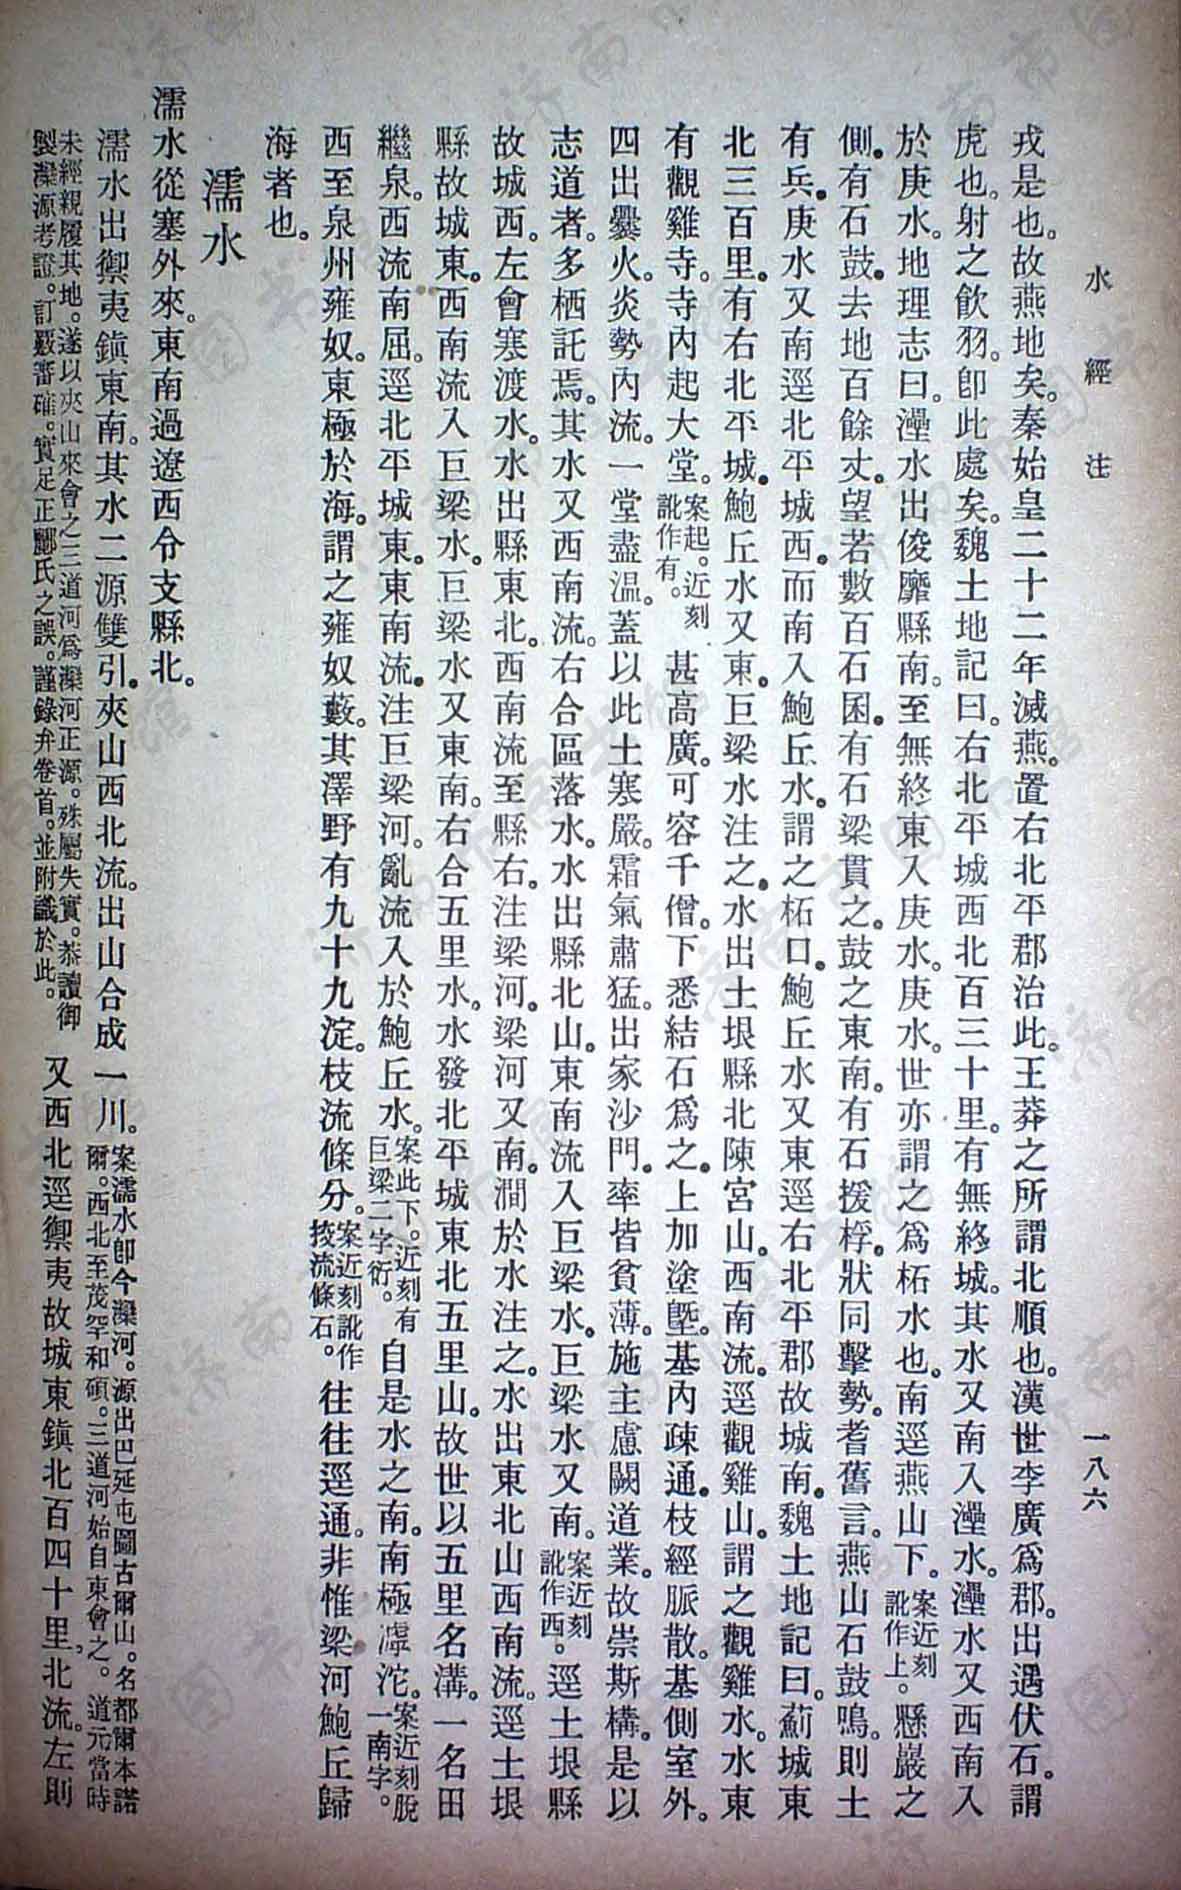 水經注
一八六
戎是也。故燕地矣。秦始皇二十二年滅燕。置右北平郡治此。王莽之所謂北順也。漢世李廣爲郡。出遇伏石。謂
虎也。射之飲羽。卽此處矣。魏土地記曰。右北平城西北百三十里。有無終城。其水又南入灅水。灅水又西南入
於庚水。地理志曰。灅水出俊靡縣南。至無終東入庚水。庚水。世亦謂之爲柘水也。南逕燕山下。案近刻訛作上。懸巖之
側。有石鼓。去地百餘丈。望若數百石囷。有石梁貫之。鼓之東南。有石援桴。狀同擊勢。耆舊言。燕山石鼓鳴。則土
有兵。庚水又南逕北平城西。而南入鮑丘水。謂之柘口。鮑丘水又東逕右北平郡故城南。魏土地記曰。薊城東
北三百里。有右北平城。鮑丘水又東。巨梁水注之。水出土垠縣北陳宮山。西南流。逕觀雞山。謂之觀雞水。水東
有觀雞寺。寺內起大堂。案起。近刻訛作有。甚高廣。可容千僧。下悉結石爲之。上加塗墍。基內疎通。枝經脈散。基側室外。
四出爨火。炎勢內流。一堂盡温。蓋以此土寒嚴。霜氣肅猛。出家沙門。率皆貧薄。施主慮闕道業。故崇斯構。是以
志道者。多栖託焉。其水又西南流。右合區落水。水出縣北山。東南流入巨梁水。巨梁水又南。案近刻訛作西。逕土垠縣
故城西。左會寒渡水。水出縣東北。西南流至縣右。注梁河。梁河又南。㵎於水注之。水出東北山西南流。逕土垠
縣故城東。西南流入巨梁水。巨梁水又東南。右合五里水。水發北平城東北五里山。故世以五里名溝。一名田
繼泉。西流南屈。逕北平城東。東南流。注巨梁河。亂流入於鮑丘水。案此下。近刻有巨梁二字衍。自是水之南。南極滹沱。案近刻脫一南字。
西至泉州雍奴。東極於海。謂之雍奴藪。其澤野有九十九淀。枝流條分。案近刻訛作掕流條石。往往逕通。非惟梁河鮑丘歸
海者也。
濡水
濡水從塞外來。東南過遼西令支縣北。
濡水出禦夷鎮東南。其水二源雙引。夾山西北流。出山合成一川。案濡水卽今灤河。源出巴延屯圖古爾山。名都爾本諾爾。西北至茂罕和碩。三道河始自東會之。道元當時
未經親履其地。遂以夾山來會之三道河爲灤河正源。殊屬失實。恭讀御製灤源考證。訂覈審確。實足正酈氏之誤。謹錄弁卷首。並附識於此。又西北逕禦夷故城東。鎮北百四十里。北流。左則